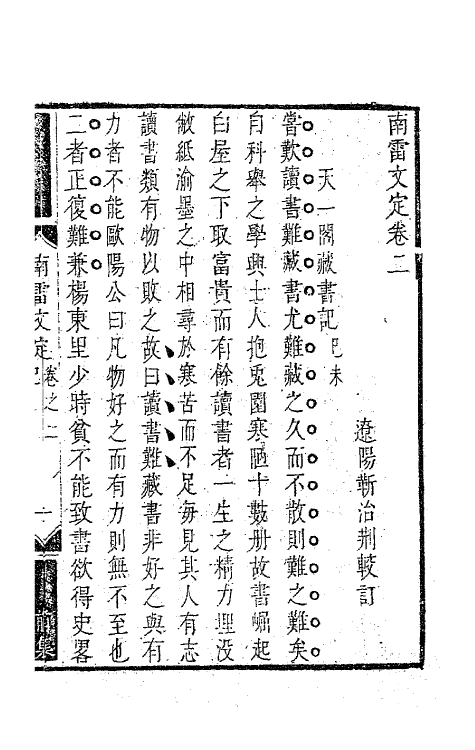 南雷文定卷二
遼陽靳治荆較訂
天一閣藏書記己未
嘗歎讀書難藏書尤難藏之久而不散則難之難矣
自科舉之學興士人抱兎園寒陋十數册故書崛起
白屋之下取富貴而有餘讀書者一生之精力埋没
敝紙渝墨之中相尋於寒苦而不足毎見其人有志
讀書類有物以敗之故曰讀書難藏書非好之與有
力者不能歐陽公曰凡物好之而有力則無不至也
二者正復難兼楊東里少時貧不能致書欲得史畧
南雷文定 卷之二 一